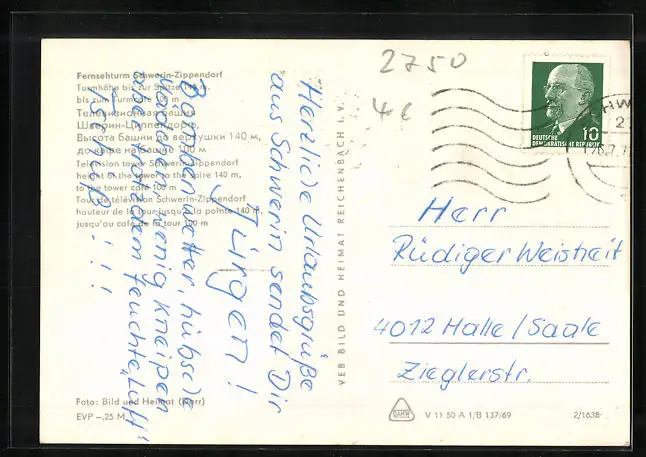 Fernsehturm Schwerin-Zippendorf
Turmhöhe bis zur Spitze 140 m,
bis zum Turmcafé 100 m
Телевизионная башня
Шверин-Циппендорф,
Высота башни до верхушки 140 м,
до кафе на башне 100 м
Television tower Schwerin-Zippendorf
height of the tower to the spire 140 m,
to the tower café 100 m
Tour de télévision Schwerin-Zippendorf
hauteur de la tour jusqu'à la pointe 140 m,
jusqu'au café de la tour 100 m
Herzliche Urlaubsgrüße
aus Schwerin sendet Dir
Jürgen!
Bombenwetter, hübsche
Mädchen, wenig Kneipen
aber trotzdem feuchte „Luft“
Tschüß!!!
Foto: Bild und Heimat (Darr)
EVP –,25 M
VEB BILD UND HEIMAT REICHENBACH I. V.
2750
4€
DEUTSCHE
DEMOKRATISCHE REPUBLIK
10
HW
Herr
Rüdiger Weisheit
4012 Halle/Saale
Zieglerstr.
V 11 50 A 1/B 137/69
2/1638